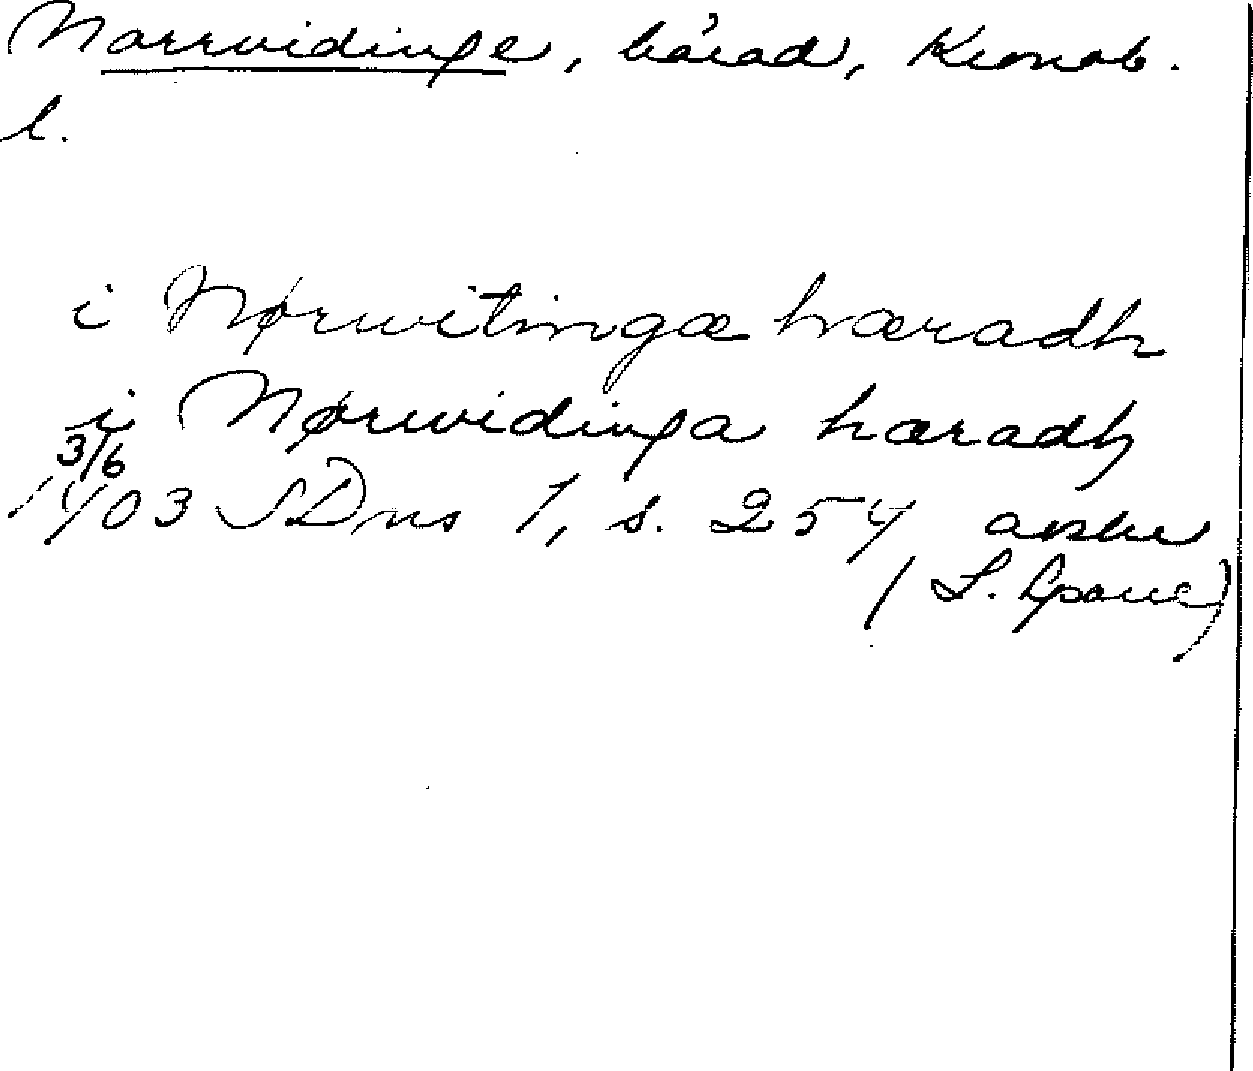 Norrvidinge, härad, Kronob.
l.
i Nørwitingæ hæradh
i Nørwidinga hæradh
3/6
1403 SDns 1, s. 254 avskr
(L.